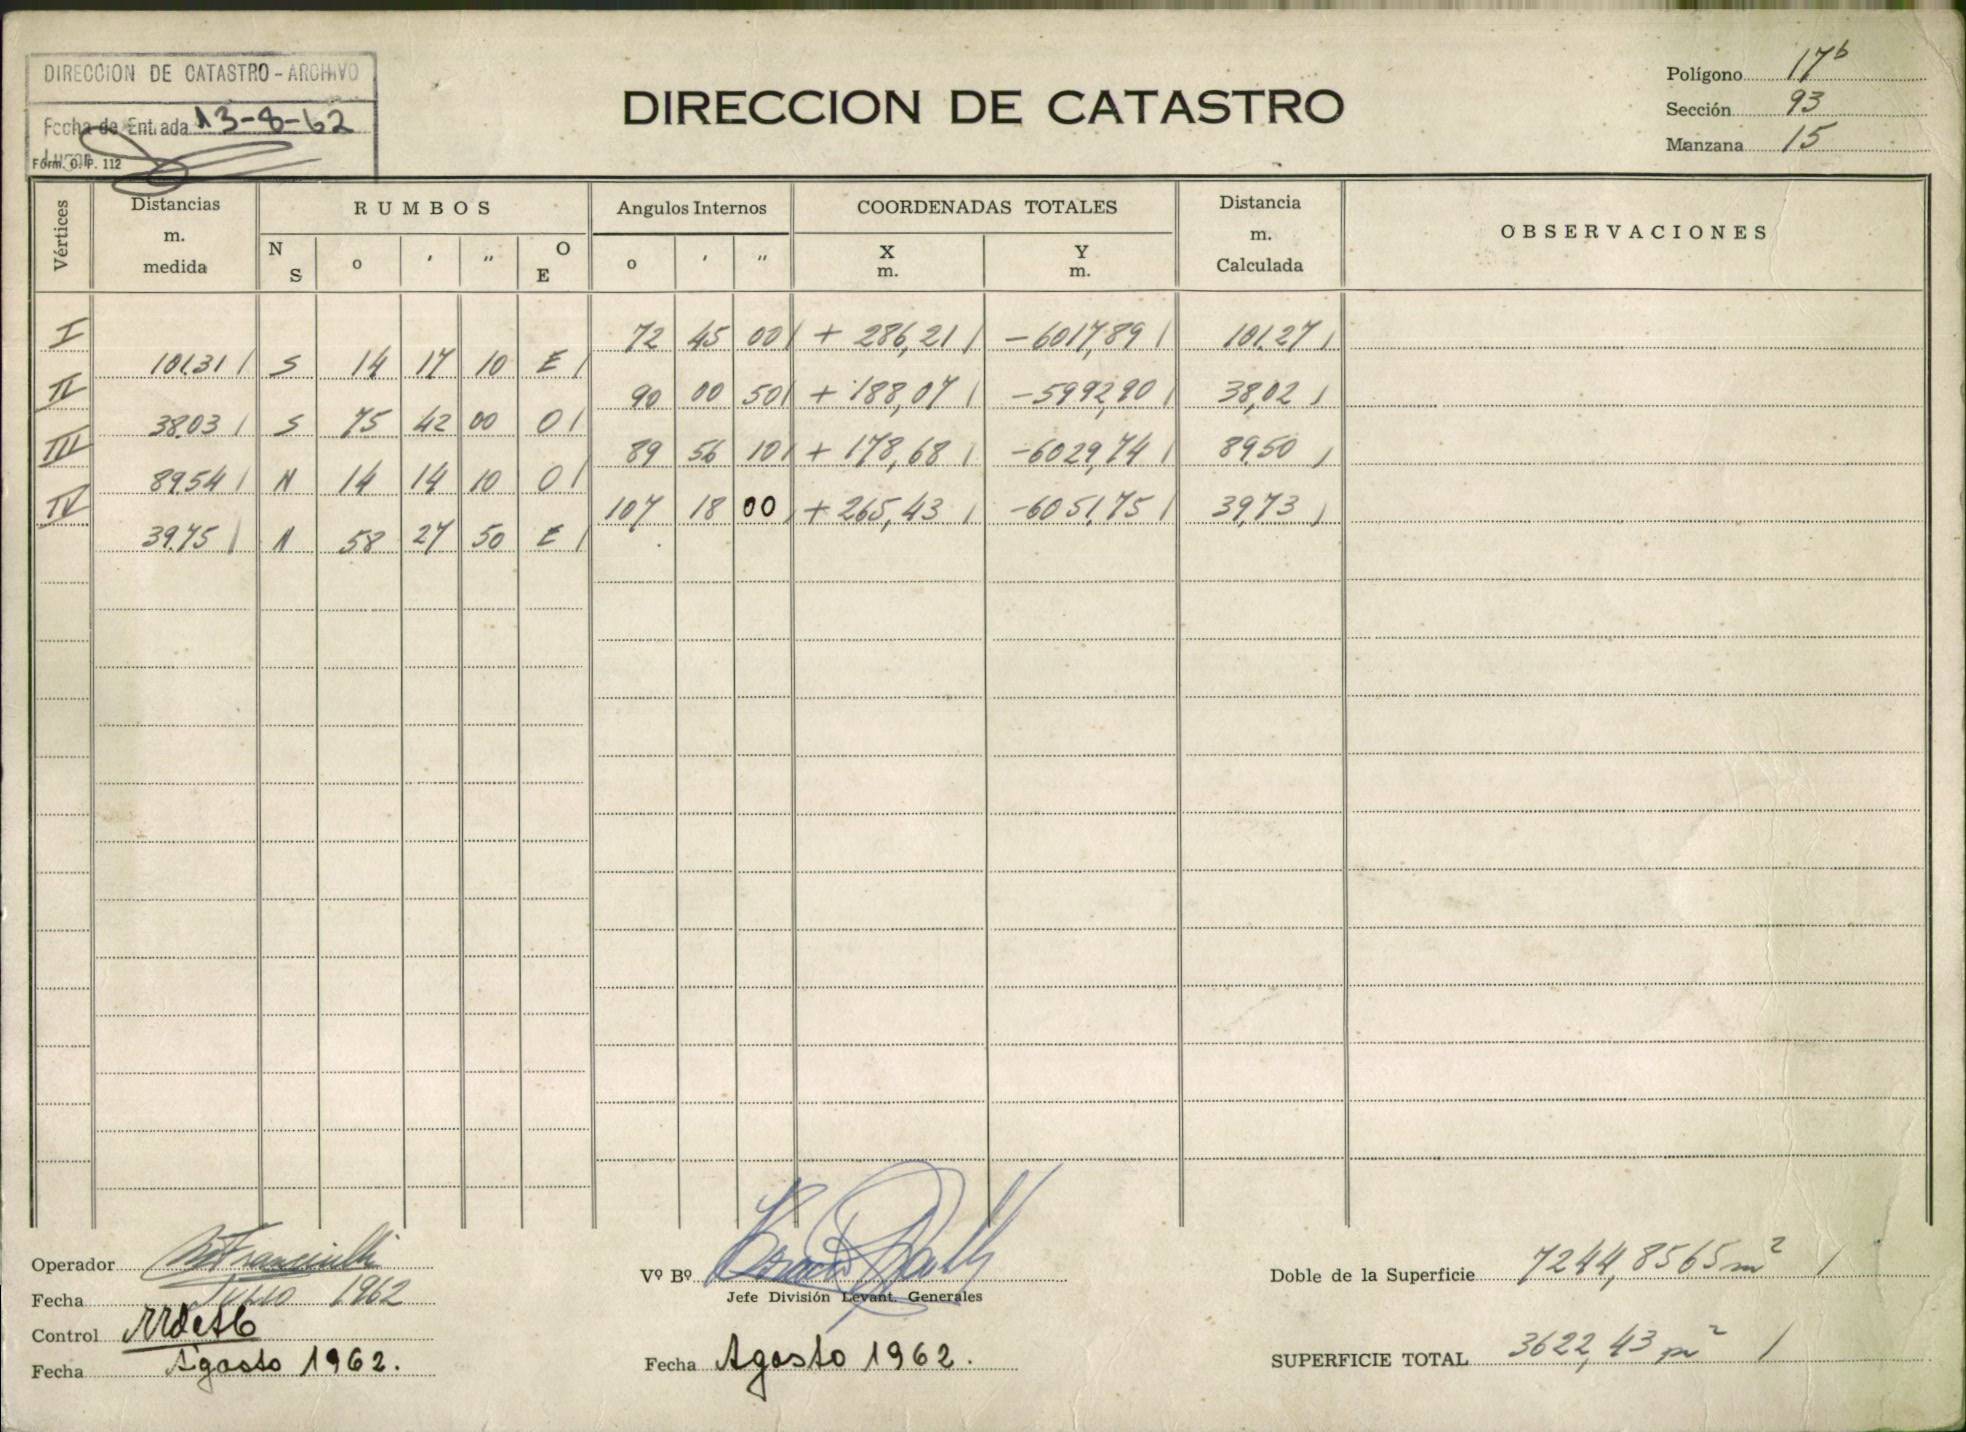 DIRECCION DE CATASTRO - ARCHIVO
Fecha de Entrada 13-8-62
Form. O. P. 112
DIRECCION DE CATASTRO
Polígono 17b
Sección 93
Manzana 15
Vértices
Distancias m. medida
RUMBOS
N S o ' " O E
Angulos Internos
o ' "
COORDENADAS TOTALES
X m. Y m.
Distancia m. Calculada
OBSERVACIONES
I 72 45 00 + 286,21 - 6017,89 101.27
101.31 S 14 17 10 E
II 90 00 50 + 188,07 - 5992,90 38,02
38.03 S 75 42 00 O
III 89 56 10 + 178,68 - 6029,74 89,50
89.54 N 14 14 10 O
IV 107 18 00 + 265,43 - 6051,75 39,73
39.75 N 58 27 50 E
Operador
Fecha Julio 1962
Control
Fecha Agosto 1962.
Vº Bº
Jefe División Levant. Generales
Fecha Agosto 1962.
Doble de la Superficie 7244,8565 m²
SUPERFICIE TOTAL 3622,43 m²